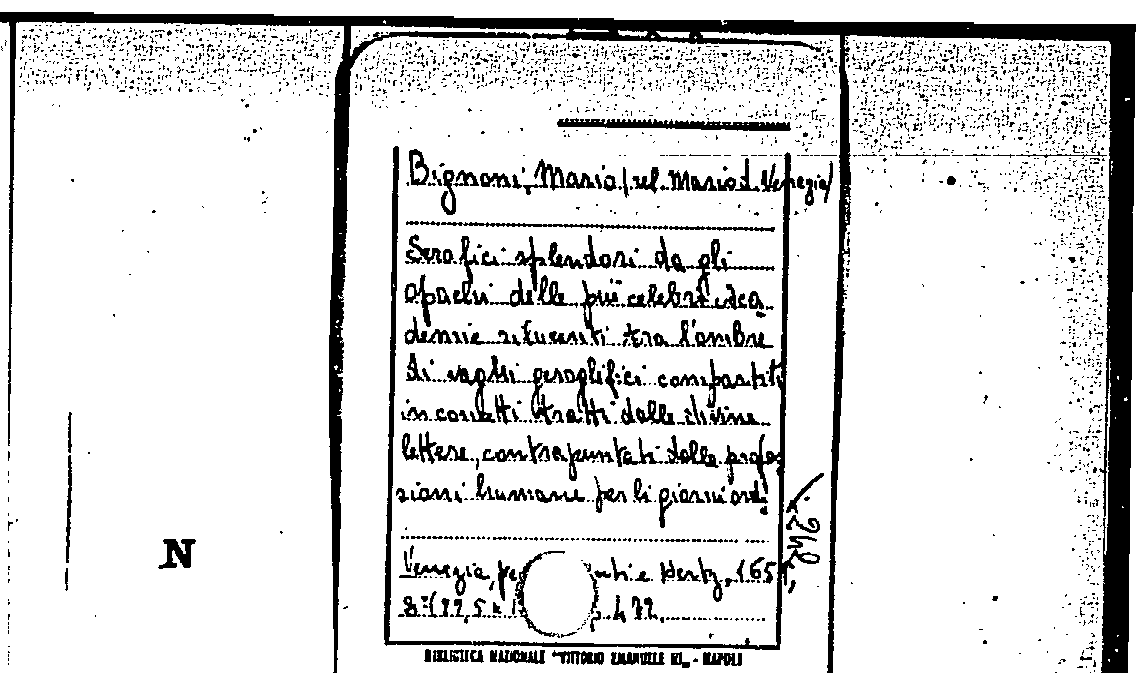 Bignoni, Mario (rel. Mario d. Venezia)
Serafici splendori da gli
opachi delle più celebri acca
demie rilucenti tra l'ombre
di vaghi geroglifici compartiti
in concetti tratti dalle divine
lettere, contrapuntati dalle profes
sioni humane per li giorni ord.
Venezia, 165
8º (22,5 x 472.
BIBLIOTECA NAZIONALE "VITTORIO EMANUELE III" - NAPOLI
N